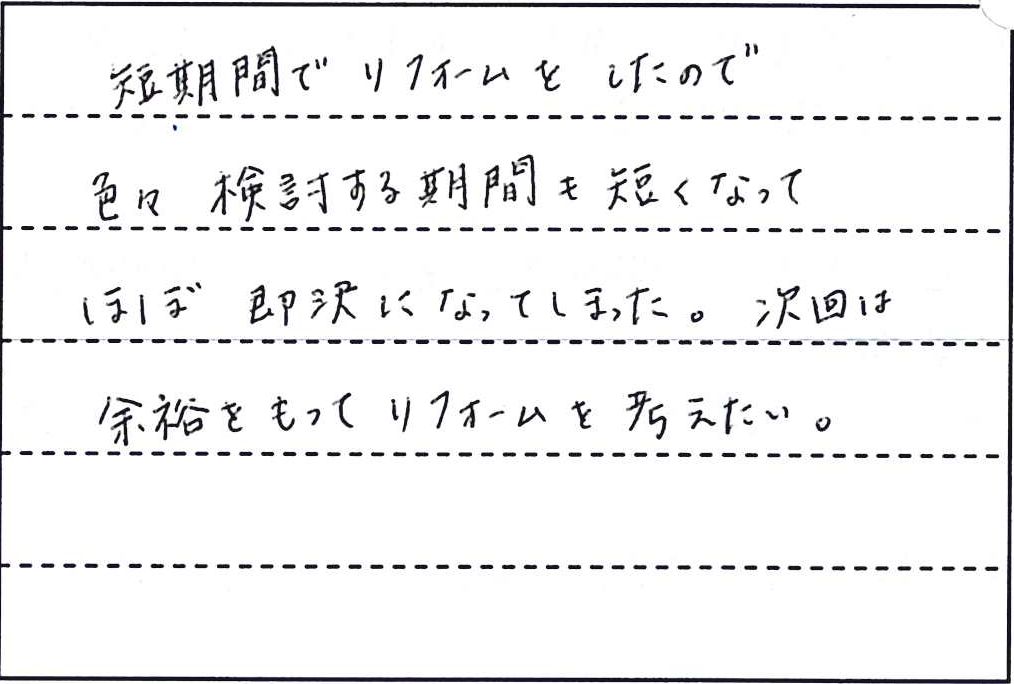 短期間でリフォームをしたので
色々検討する期間も短くなって
ほぼ即決になってしまった。次回は
余裕をもってリフォームを考えたい。